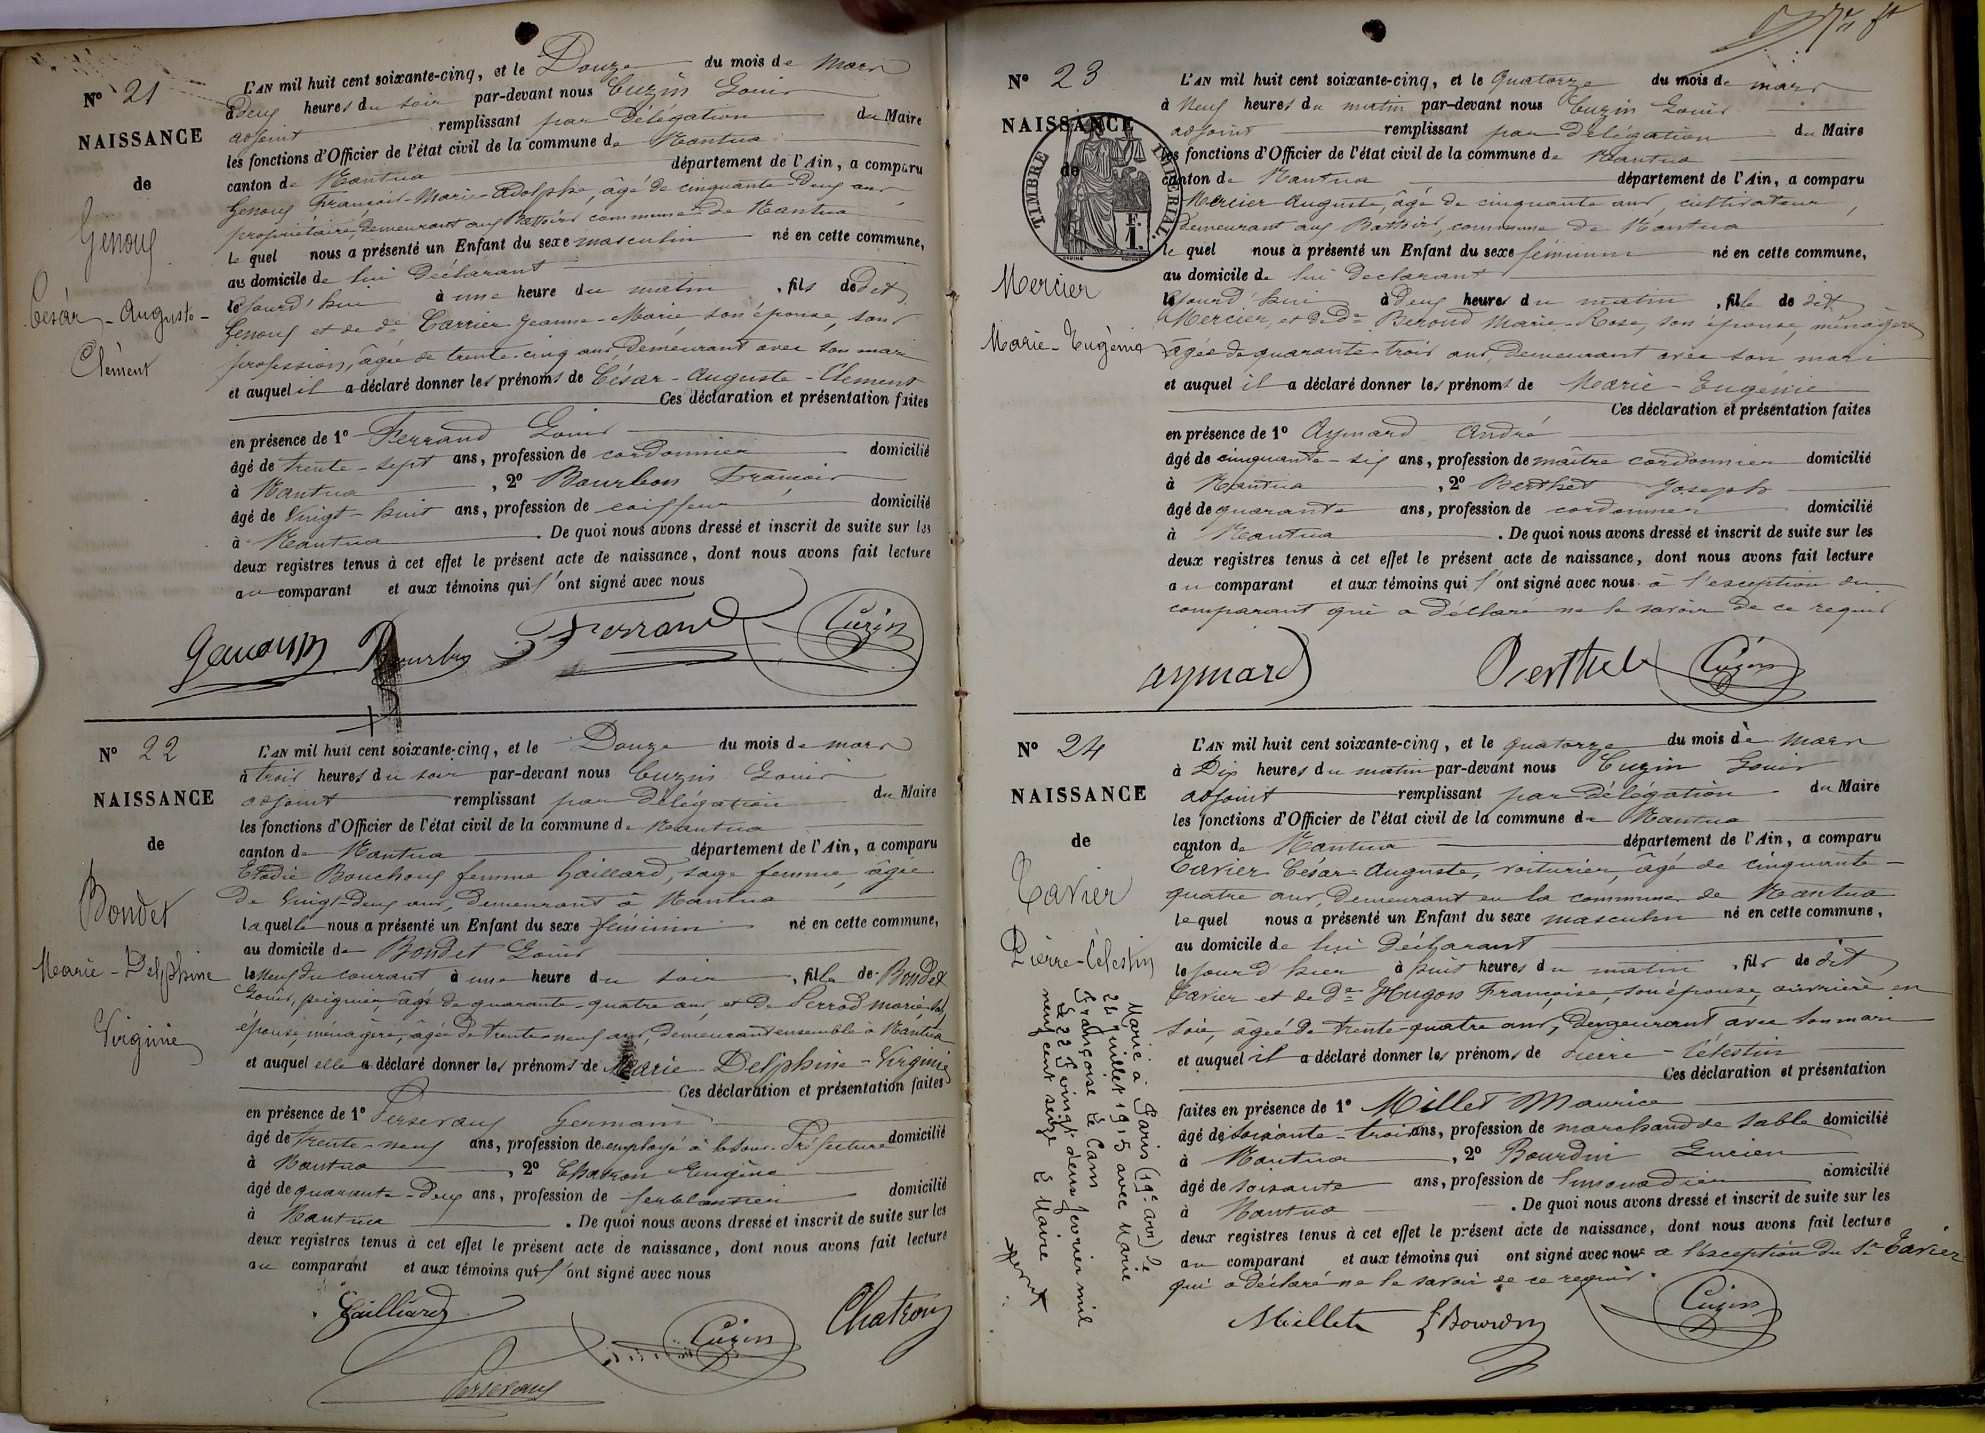 N° 21
NAISSANCE
de
Genoux
César-Auguste-
Clément
L'AN mil huit cent soixante-cinq, et le Douze du mois de mars
à Deux heures du soir par-devant nous Cuzin Louis
adjoint remplissant par délégation du Maire
les fonctions d'Officier de l'état civil de la commune de Nantua
canton de Nantua département de l'Ain, a comparu
Genoux François-Marie-Adolphe, âgé de cinquante-deux ans
propriétaire demeurant aux Battoirs commune de Nantua
le quel nous a présenté un Enfant du sexe masculin né en cette commune,
au domicile de lui déclarant
le jourd'hui à une heure du matin, fils de dit
Genoux et de de Carrier Jeanne-Marie son épouse, sans
profession, âgée de trente-cinq ans, demeurant avec son mari
et auquel il a déclaré donner les prénoms de César-Auguste-Clément
Ces déclaration et présentation faites
en présence de 1° Ferrand Louis
âgé de trente-sept ans, profession de cordonnier domicilié
à Nantua, 2° Bourbon François
âgé de vingt-huit ans, profession de coiffeur domicilié
à Nantua. De quoi nous avons dressé et inscrit de suite sur les
deux registres tenus à cet effet le présent acte de naissance, dont nous avons fait lecture
au comparant et aux témoins qui l'ont signé avec nous
Genoux Bourbon Ferrand Cuzin
N° 22
NAISSANCE
de
Bondet
Marie-Delphine
Virginie
L'AN mil huit cent soixante-cinq, et le Douze du mois de mars
à trois heures du soir par-devant nous Cuzin Louis
adjoint remplissant par délégation du Maire
les fonctions d'Officier de l'état civil de la commune de Nantua
canton de Nantua département de l'Ain, a comparu
Elodie Bouchoux femme Gaillard, sage femme, âgée
de vingt-deux ans, demeurant à Nantua
laquelle nous a présenté un Enfant du sexe féminin né en cette commune,
au domicile de Bondet Louis
le neuf du courant à une heure du soir, fille de Bondet
Louis, peignier, âgé de quarante-quatre ans, et de Serrod marie, son
épouse, ménagère, âgée de trente-neuf ans, demeurant ensemble à Nantua
et auquel elle a déclaré donner les prénoms de Marie-Delphine-Virginie
Ces déclaration et présentation faites
en présence de 1° Perseraux Germain
âgé de trente-neuf ans, profession de employé à la Sous-Préfecture domicilié
à Nantua, 2° Chatron Eugène
âgé de quarante-deux ans, profession de ferblantier domicilié
à Nantua. De quoi nous avons dressé et inscrit de suite sur les
deux registres tenus à cet effet le présent acte de naissance, dont nous avons fait lecture
au comparant et aux témoins qui l'ont signé avec nous
Gailliard Cuzin Chatron
N° 23
NAISSANCE
de
TIMBRE IMPÉRIAL
F.
1.
Mercier
Marie-Eugénie
L'AN mil huit cent soixante-cinq, et le quatorze du mois de mars
à neuf heures du matin par-devant nous Cuzin Louis
adjoint remplissant par délégation du Maire
les fonctions d'Officier de l'état civil de la commune de Nantua
canton de Nantua département de l'Ain, a comparu
Mercier Auguste, âgé de cinquante ans, cultivateur,
demeurant aux Battoirs, commune de Nantua
le quel nous a présenté un Enfant du sexe féminin né en cette commune,
au domicile de lui déclarant
le jourd'hui à deux heures du matin, fille de dit
Mercier, et de De Beroud Marie-Rose, son épouse, ménagère
âgée de quarante-trois ans, demeurant avec son mari
et auquel il a déclaré donner les prénoms de Marie-Eugénie
Ces déclaration et présentation faites
en présence de 1° Aymard André
âgé de cinquante-six ans, profession de maître cordonnier domicilié
à Nantua, 2° Berthet Joseph
âgé de quarante ans, profession de cordonnier domicilié
à Nantua. De quoi nous avons dressé et inscrit de suite sur les
deux registres tenus à cet effet le présent acte de naissance, dont nous avons fait lecture
au comparant et aux témoins qui l'ont signé avec nous à l'exception du
comparant qui a déclaré ne le savoir de ce requis
aymard Berthet Cuzin
N° 24
NAISSANCE
de
Tavier
Pierre-Célestin
Marié à Paris (19e arr) le
24 juillet 1915 avec Marie
Françoise Le Cam
Le 22 vingt deux février mil
neuf cent seize Le Maire
L'AN mil huit cent soixante-cinq, et le quatorze du mois de mars
à Dix heures du matin par-devant nous Cuzin Louis
adjoint remplissant par délégation du Maire
les fonctions d'Officier de l'état civil de la commune de Nantua
canton de Nantua département de l'Ain, a comparu
Tavier César Auguste, voiturier, âgé de cinquante-
quatre ans, demeurant en la commune de Nantua
le quel nous a présenté un Enfant du sexe masculin né en cette commune,
au domicile de lui déclarant
le jour d'hier à huit heures du matin, fils de dit
Tavier et de De Hugon Françoise, son épouse, ouvrière en
soie, âgée de trente-quatre ans, demeurant avec son mari
et auquel il a déclaré donner les prénoms de Pierre-Célestin
Ces déclaration et présentation
faites en présence de 1° Millet Maurice
âgé de soixante-trois ans, profession de marchand de sable domicilié
à Nantua, 2° Bourdin Lucien
âgé de soixante ans, profession de limonadier domicilié
à Nantua. De quoi nous avons dressé et inscrit de suite sur les
deux registres tenus à cet effet le présent acte de naissance, dont nous avons fait lecture
au comparant et aux témoins qui ont signé avec nous à l'exception du Sr Tavier
qui a déclaré ne le savoir de ce requis.
Millet LBourdin Cuzin